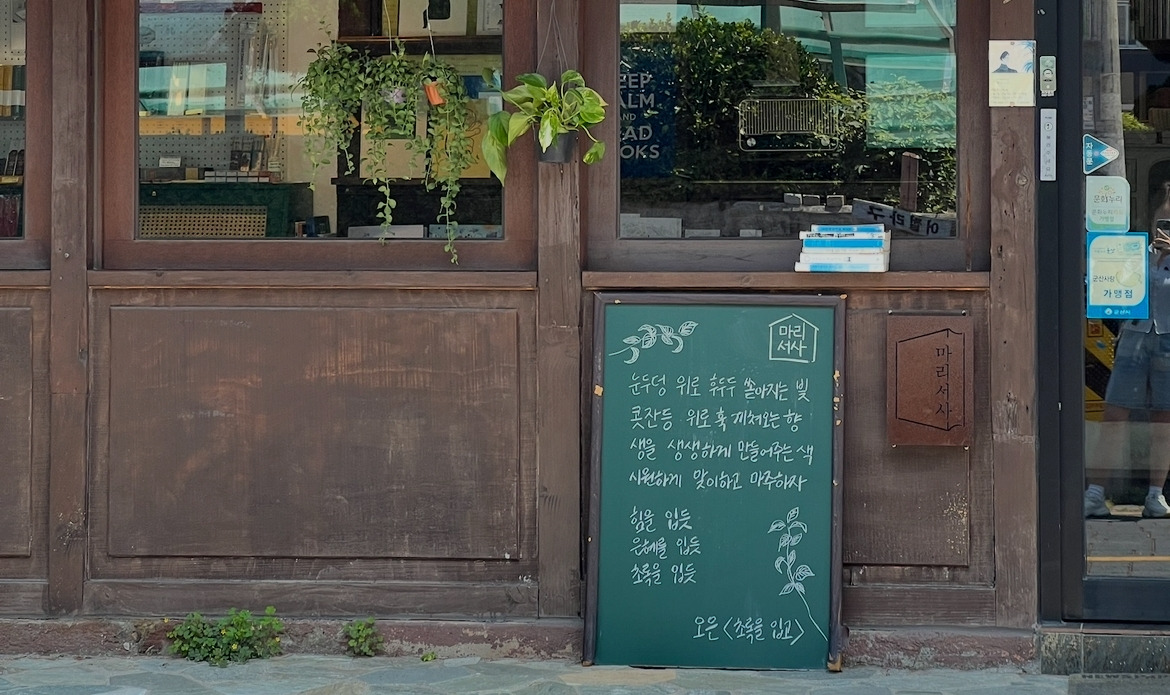 KEEP
CALM
AND
READ
BOOKS
마리
서사
눈두덩 위로 후두두 쏟아지는 빛
콧잔등 위로 훅 끼쳐오는 향
생을 생생하게 만들어주는 색
시원하게 맞이하고 마주하자
힘을 입듯
은혜를 입듯
초록을 입듯
오은 <초록을 입고>
마리서사
자동문
문화누리
문화누리카드
가맹점
군산사랑
가맹점
군산시